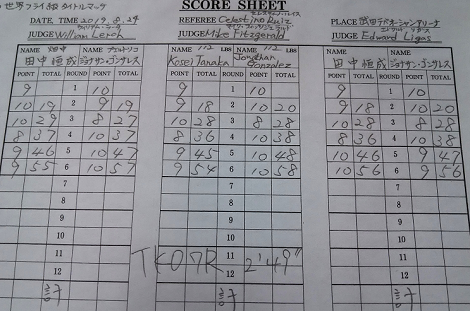 世界フライ級タイトルマッチ SCORE SHEET
DATE, TIME 2019.8.24 REFEREE Celestino Ruiz PLACE 武田テバオーシャンアリーナ
JUDGE William Lerch JUDGE Mike Fitzgerald JUDGE Edward Ligas
NAME 畑中 NAME プエルトリコ NAME 112 LBS NAME 112 LBS NAME NAME
田中恒成 ジョナサン・ゴンサレス Kosei Tanaka Jonathan Gonzalez 田中恒成 ジョナサン・ゴンサレス
POINT TOTAL ROUND POINT TOTAL POINT TOTAL ROUND POINT TOTAL POINT TOTAL ROUND POINT TOTAL
9 1 10 9 1 10 9 1 10
10 19 2 9 19 9 18 2 10 20 9 18 2 10 20
10 29 3 8 27 10 28 3 8 28 10 28 3 8 28
8 37 4 10 37 8 36 4 10 38 8 36 4 10 38
9 46 5 10 47 9 45 5 10 48 10 46 5 9 47
9 55 6 10 57 9 54 6 10 58 10 56 6 9 56
7 7 7
8 8 8
9 9 9
10 10 10
11 TKO 7R 11 2'49" 11
12 12 12
計 計 計